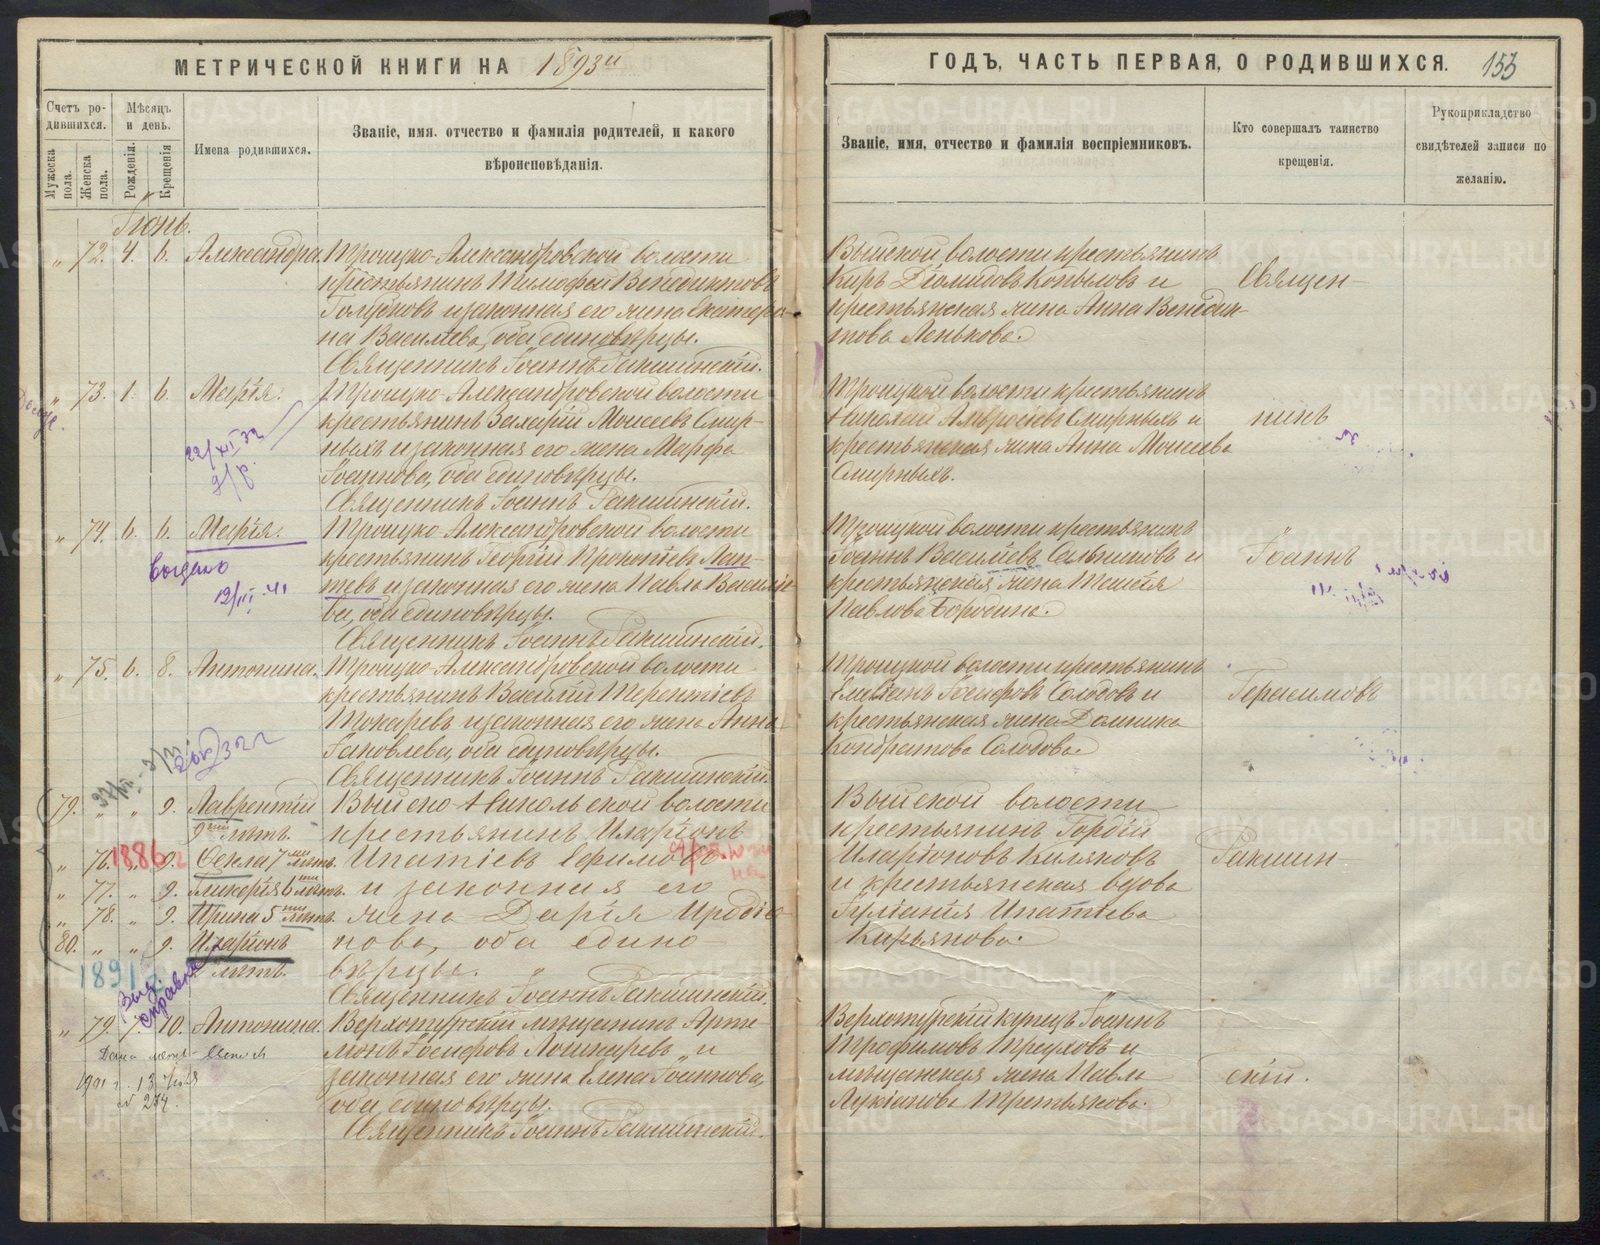 МЕТРИЧЕСКОЙ КНИГИ НА 1893й
ГОДЪ, ЧАСТЬ ПЕРВАЯ, О РОДИВШИХСЯ. 153
Счетъ родившихся.
Мужеска пола.
Женска пола.
Мѣсяцъ и день.
Рожденія.
Крещенія
Имена родившихся.
Званіе, имя, отчество и фамилія родителей, и какого
вѣроисповѣданія.
Званіе, имя, отчество и фамилія воспріемниковъ.
Кто совершалъ таинство
крещенія.
Рукоприкладство
свидѣтелей записи по
желанію.
Іюнь.
„ 72. 4. 6. Александра. Троицко-Александровской волости
крестьянинъ Тимофей Венедиктовъ
Голубковъ и законная его жена Екатери-
на Васильева, оба единовѣрцы.
Священникъ Іоаннъ Ракшинскій.
Выйской волости крестьянинъ
Киръ Діомидовъ Копыловъ и
крестьянская жена Анна Венедик-
това Пенькова.
Священ-
„ 73. 1. 6. Марія. Троицко-Александровской волости
крестьянинъ Захарій Моисеевъ Смир-
ныхъ и законная его жена Марфа
Іоаннова, оба единовѣрцы.
Священникъ Іоаннъ Ракшинскій.
22/XI 32
Троицкой волости крестьянинъ
Николай Амвросіевъ Смирныхъ и
крестьянская жена Анна Моисеева
Смирныхъ.
никъ
„ 74. 6. 6. Марія. Троицко-Александровской волости
крестьянинъ Георгій Прокопіевъ Лап-
тевъ и законная его жена Павла Василье-
ва, оба единовѣрцы.
Священникъ Іоаннъ Ракшинскій.
Выдано
Троицкой волости крестьянинъ
Іоаннъ Василіевъ Сальниковъ и
крестьянская жена Таисія
Павлова Бородина.
Іоаннъ
„ 75. 6. 8. Антонина. Троицко-Александровской волости
крестьянинъ Василій Терентіевъ
Токаревъ и законная его жена Анна
Іаковлева, оба единовѣрцы.
Священникъ Іоаннъ Ракшинскій.
Троицкой волости крестьянинъ
Емиліанъ Іосифовъ Солодовъ и
крестьянская жена Домника
Кондратова Солодова.
Герасимовъ
79. „ „ 9. Лаврентій
9ти лѣтъ.
„ 76. „ 9. Ѳекла 7ми лѣтъ.
1886 г
„ 77. „ 9. Гликерія 6ти лѣтъ.
„ 78. „ 9. Ирина 5ти лѣтъ.
80. „ „ 9. Иларіонъ
2 лѣтъ.
1891 г.
Выйско-Никольской волости
крестьянинъ Иларіонъ
Ипатіевъ Ефимовъ
и законная его
жена Дарія Иродіо-
нова, оба едино
вѣрцы.
Священникъ Іоаннъ Ракшинскій.
Выйской волости
крестьянинъ Гордій
Иларіоновъ Киляковъ
и крестьянская вдова
Іуліанія Ипатіева
Кирьянова.
Ракшин
Выд.
справка
„ 79. 7. 10. Антонина. Верхотурскій мѣщанинъ Арте-
монъ Іосифовъ Лошкаревъ и
законная его жена Елена Іоаннова,
оба единовѣрцы.
Священникъ Іоаннъ Ракшинскій.
Верхотурскій купецъ Іоаннъ
Трофимовъ Треуховъ и
мѣщанская жена Павла
Лукіанова Третьякова.
скій.
1901 г. 13 Іюля
№ 274.
METRIKI.GASO-URAL.RU